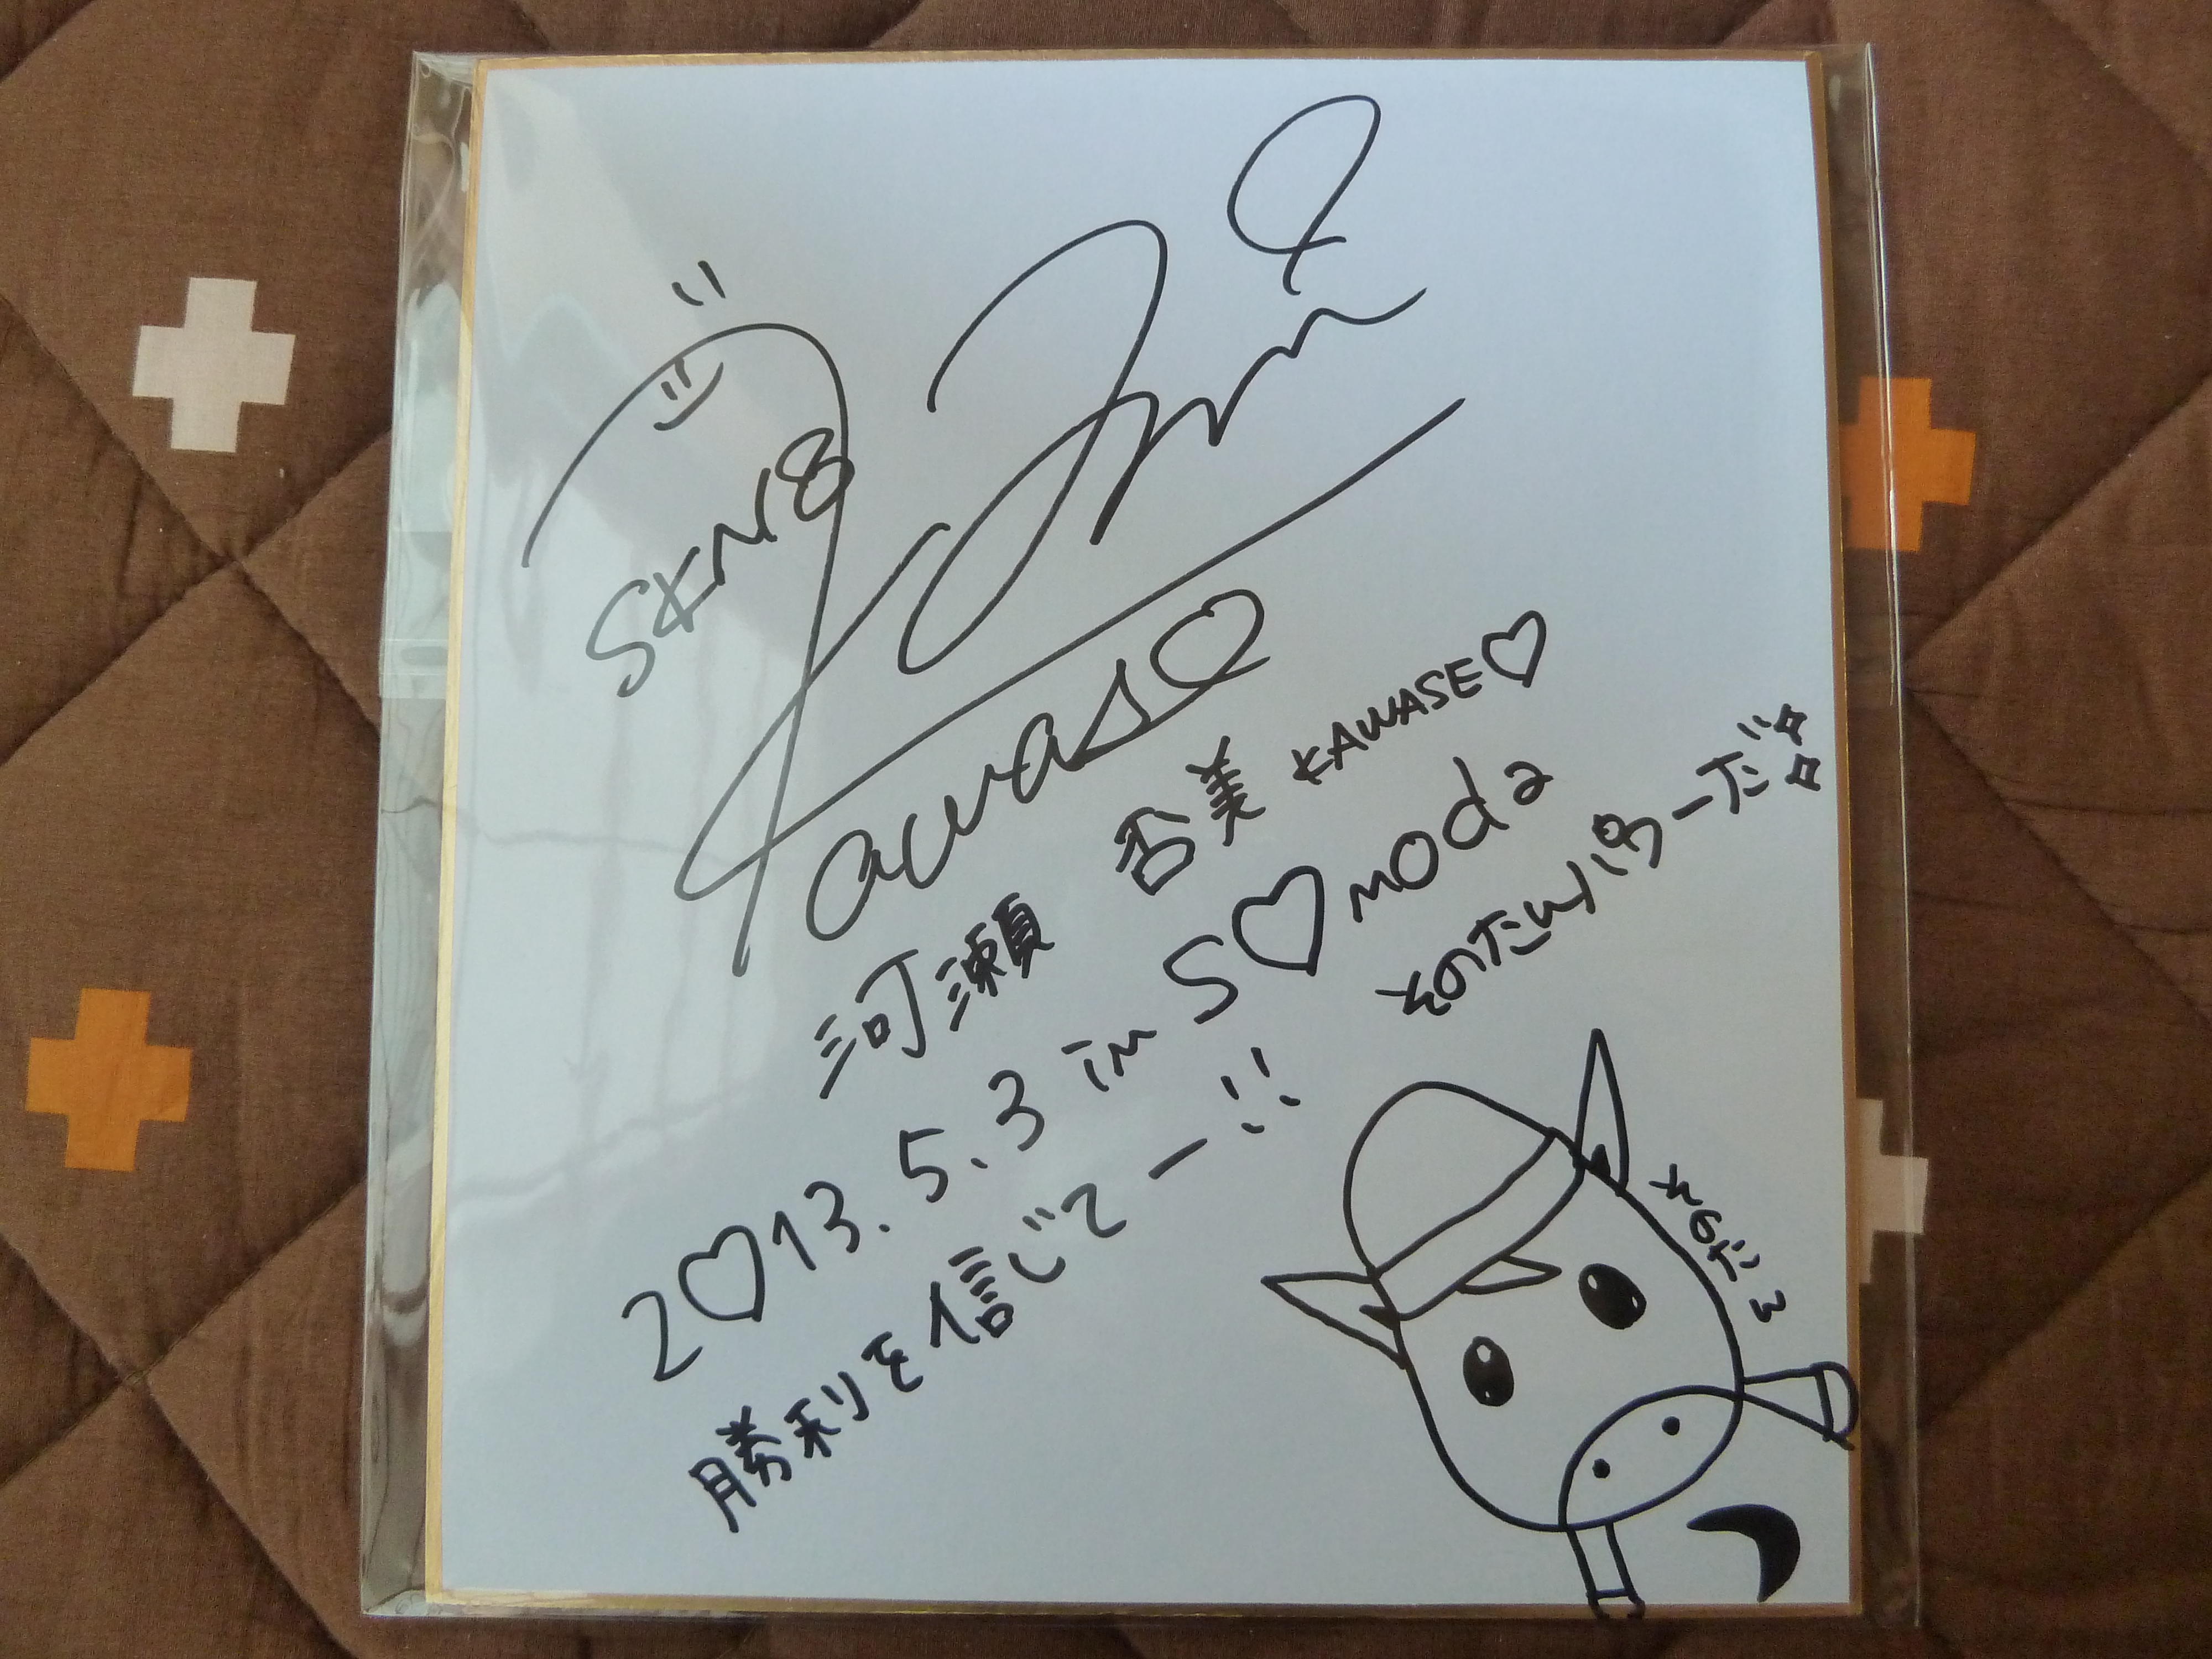 SKN8
Kawase
河瀬 杏美 KAWASE♡
2♡13.5.3 in S♡noda
勝利を信じてー!!
そのたんパワーだ☆☆
そのたん